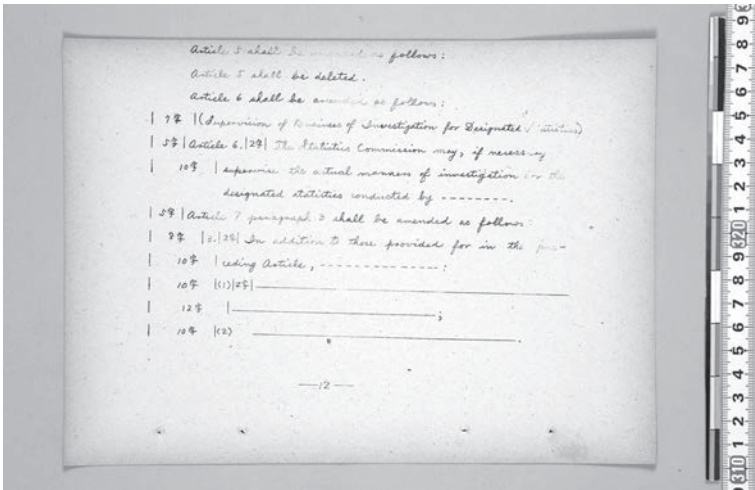 Article 5 shall be amended as follows:
Article 5 shall be deleted.
Article 6 shall be amended as follows:
| 7字 |(Supervision of Business of Investigation for Designated Statistics)
| 5字 | Article 6. |2字| The Statistics Commission may, if necessary
| 10字 | supervise the actual manners of investigation for the
designated statistics conducted by --------.
| 5字 | Article 7 paragraph 3 shall be amended as follows:
| 8字 |3.|2字| In addition to those provided for in the pre-
| 10字 | ceding Article, --------------:
| 10字 |(1)|2字|
| 12字 | ;
| 10字 |(2) .
—12—
9
8
7
6
5
4
3
2
1
320
9
8
7
6
5
4
3
2
1
310